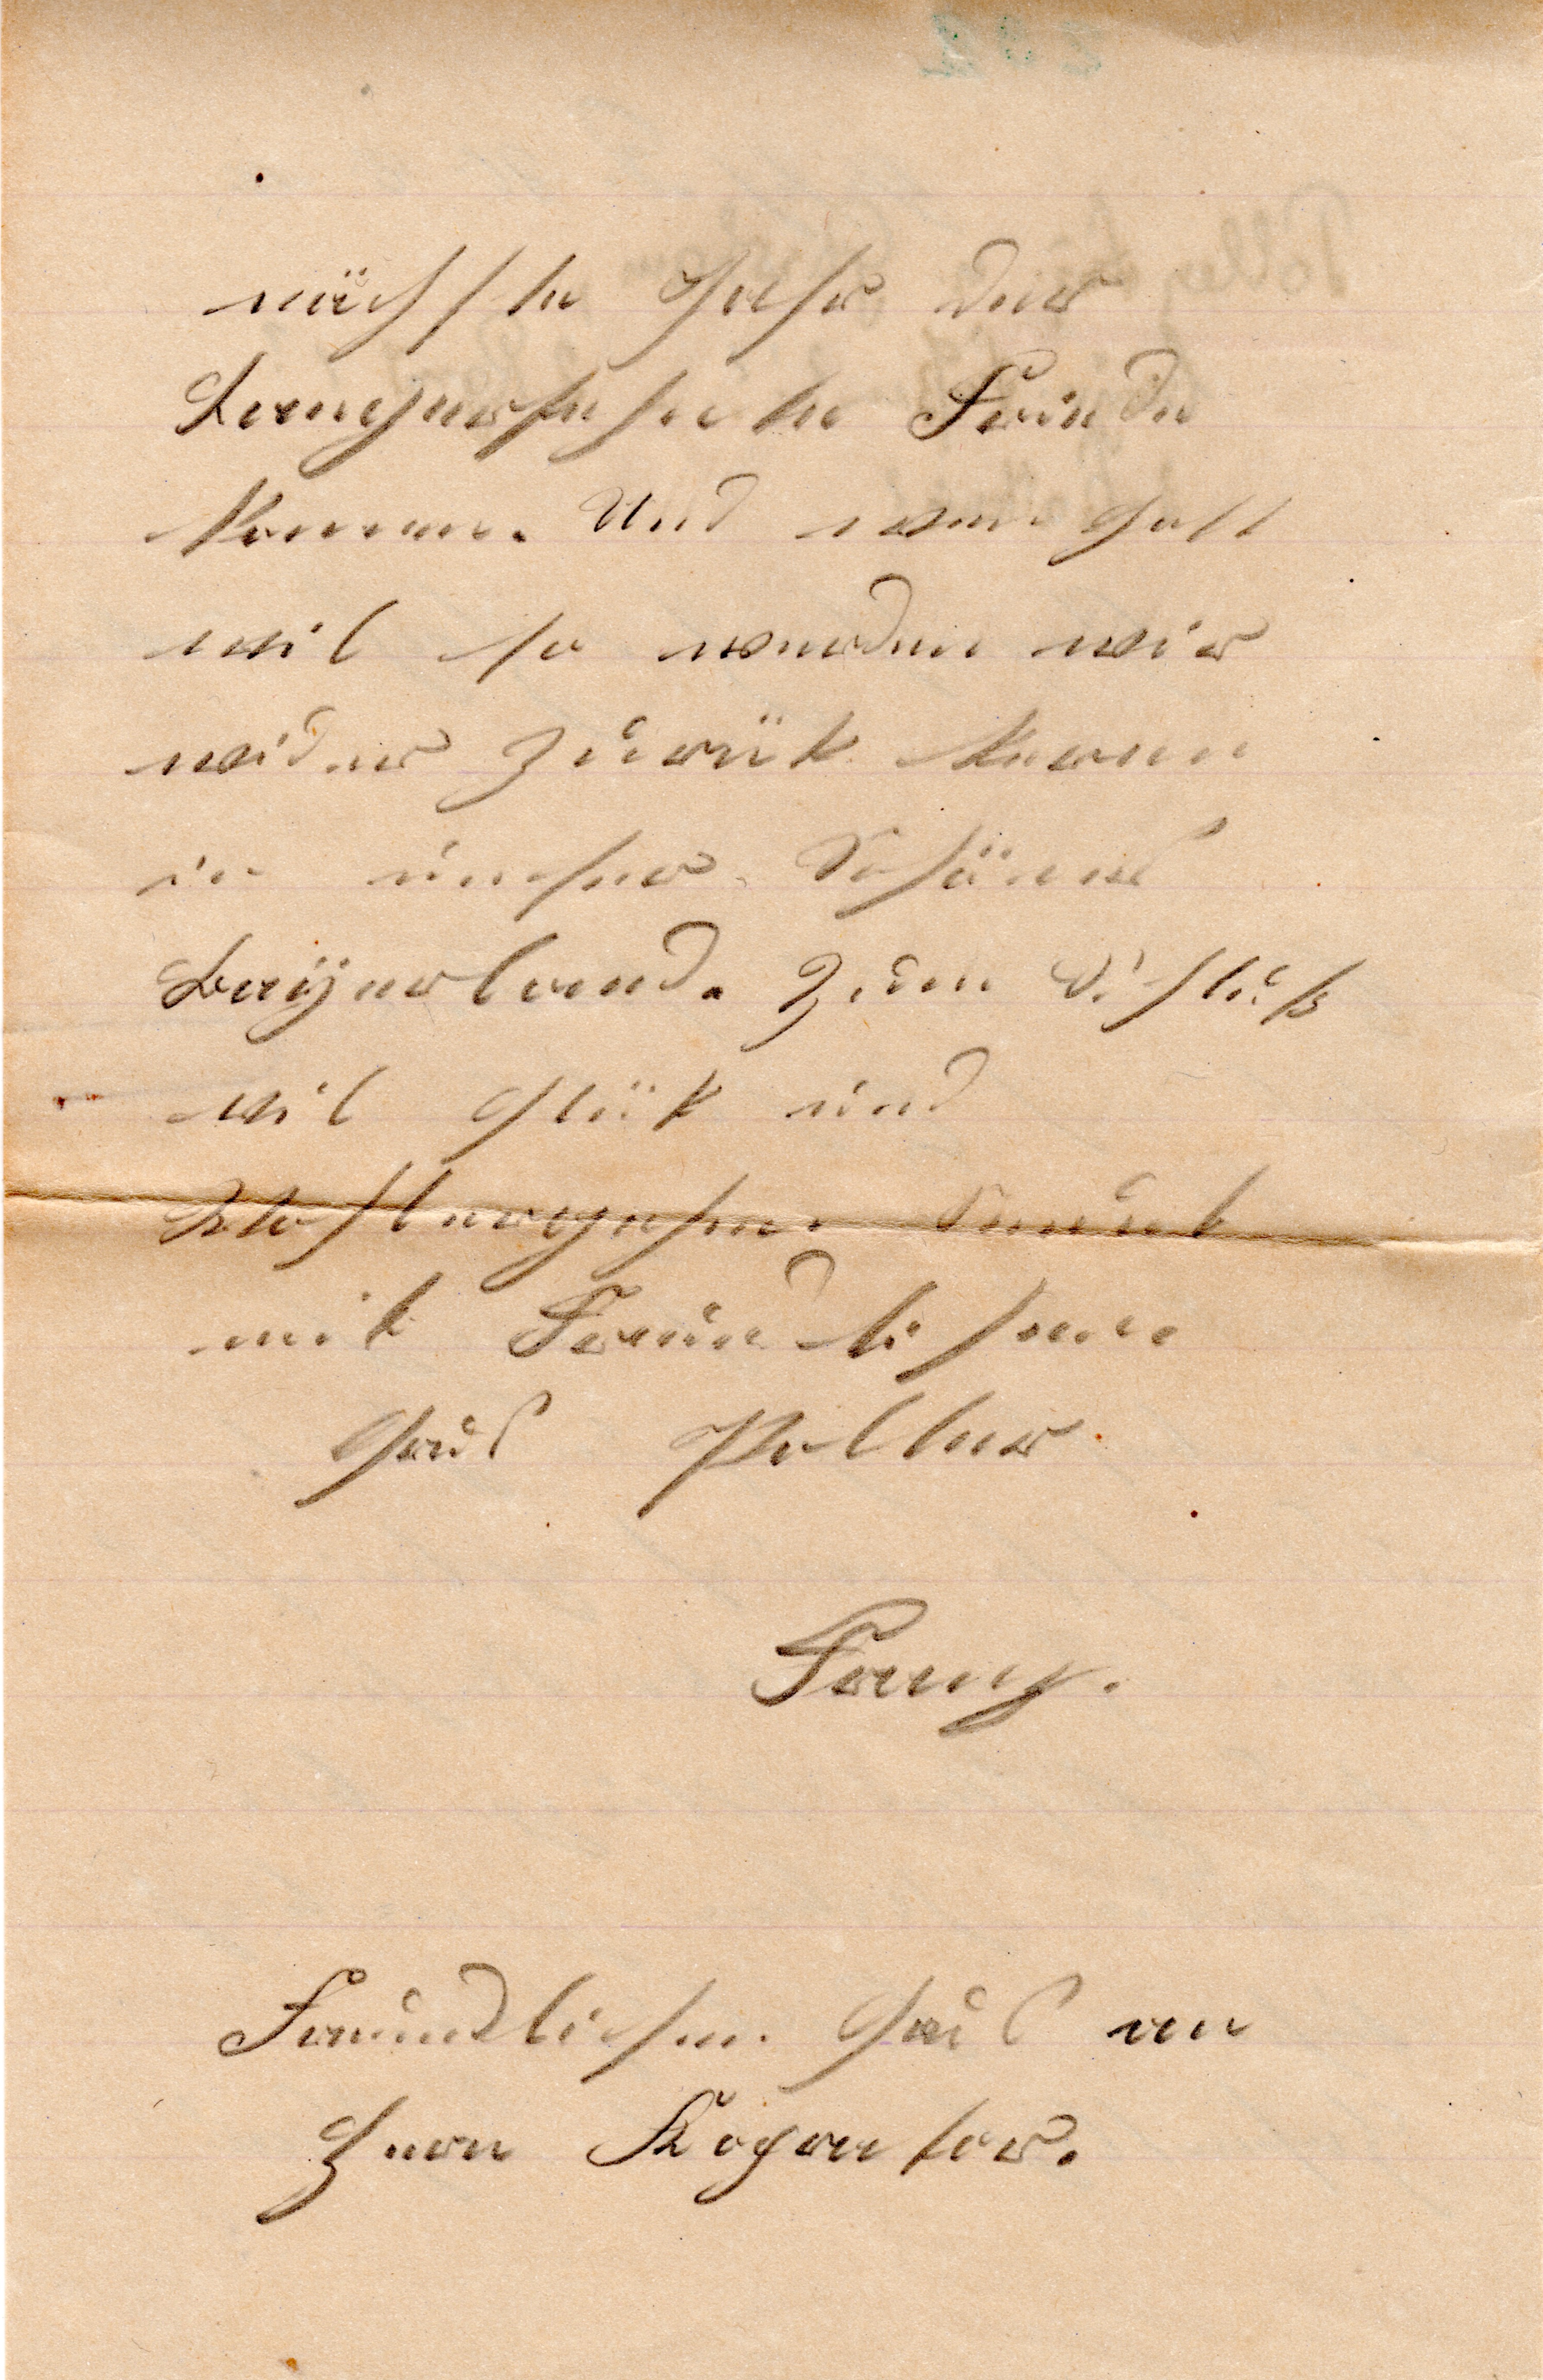 nächste Jahr der
Langersehnte Freude
kommen. Und wen Gott
wil so werden wir
wider zurük keren
in unser Schönes
Bayerland. Zum Schluß
vil Glük und
Wohlergehen sendet
mit Freundlichen
Gruß Walter
Franz.
Freundlichen Gruß an
Herrn